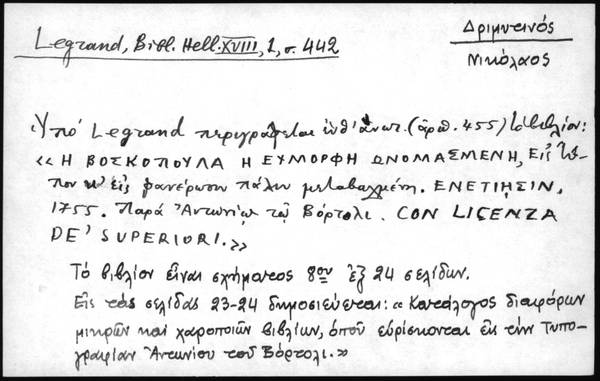 Legrand, Bibl. Hell. XVIII, 1, σ. 442
Δριμυτινός
Νικόλαος
Ὑπό Legrand περιγράφεται ἐνθ' ἀνωτ. (ἀρθ. 455) τό βιβλίον:
«Η ΒΟΣΚΟΠΟΥΛΑ Η ΕΥΜΟΡΦΗ ΩΝΟΜΑΣΜΕΝΗ, Εἰς τύ-
πον κ' εἰς φανέρωσιν πάλιν μεταβαλμένη. ΕΝΕΤΙΗΣΙΝ,
1755. Παρά Ἀντωνίῳ τῷ Βόρτολι. CON LICENZA
DE' SUPERIORI.»
Τό βιβλίον εἶναι σχήματος 8ου ἐξ 24 σελίδων.
Εἰς τάς σελίδας 23-24 δημοσιεύεται: «Κατάλογος διαφόρων
μικρῶν καί χαροποιῶν βιβλίων, ὁποῦ εὑρίσκονται εἰς τήν Τυπο-
γραφίαν Ἀντωνίου τοῦ Βόρτολι.»